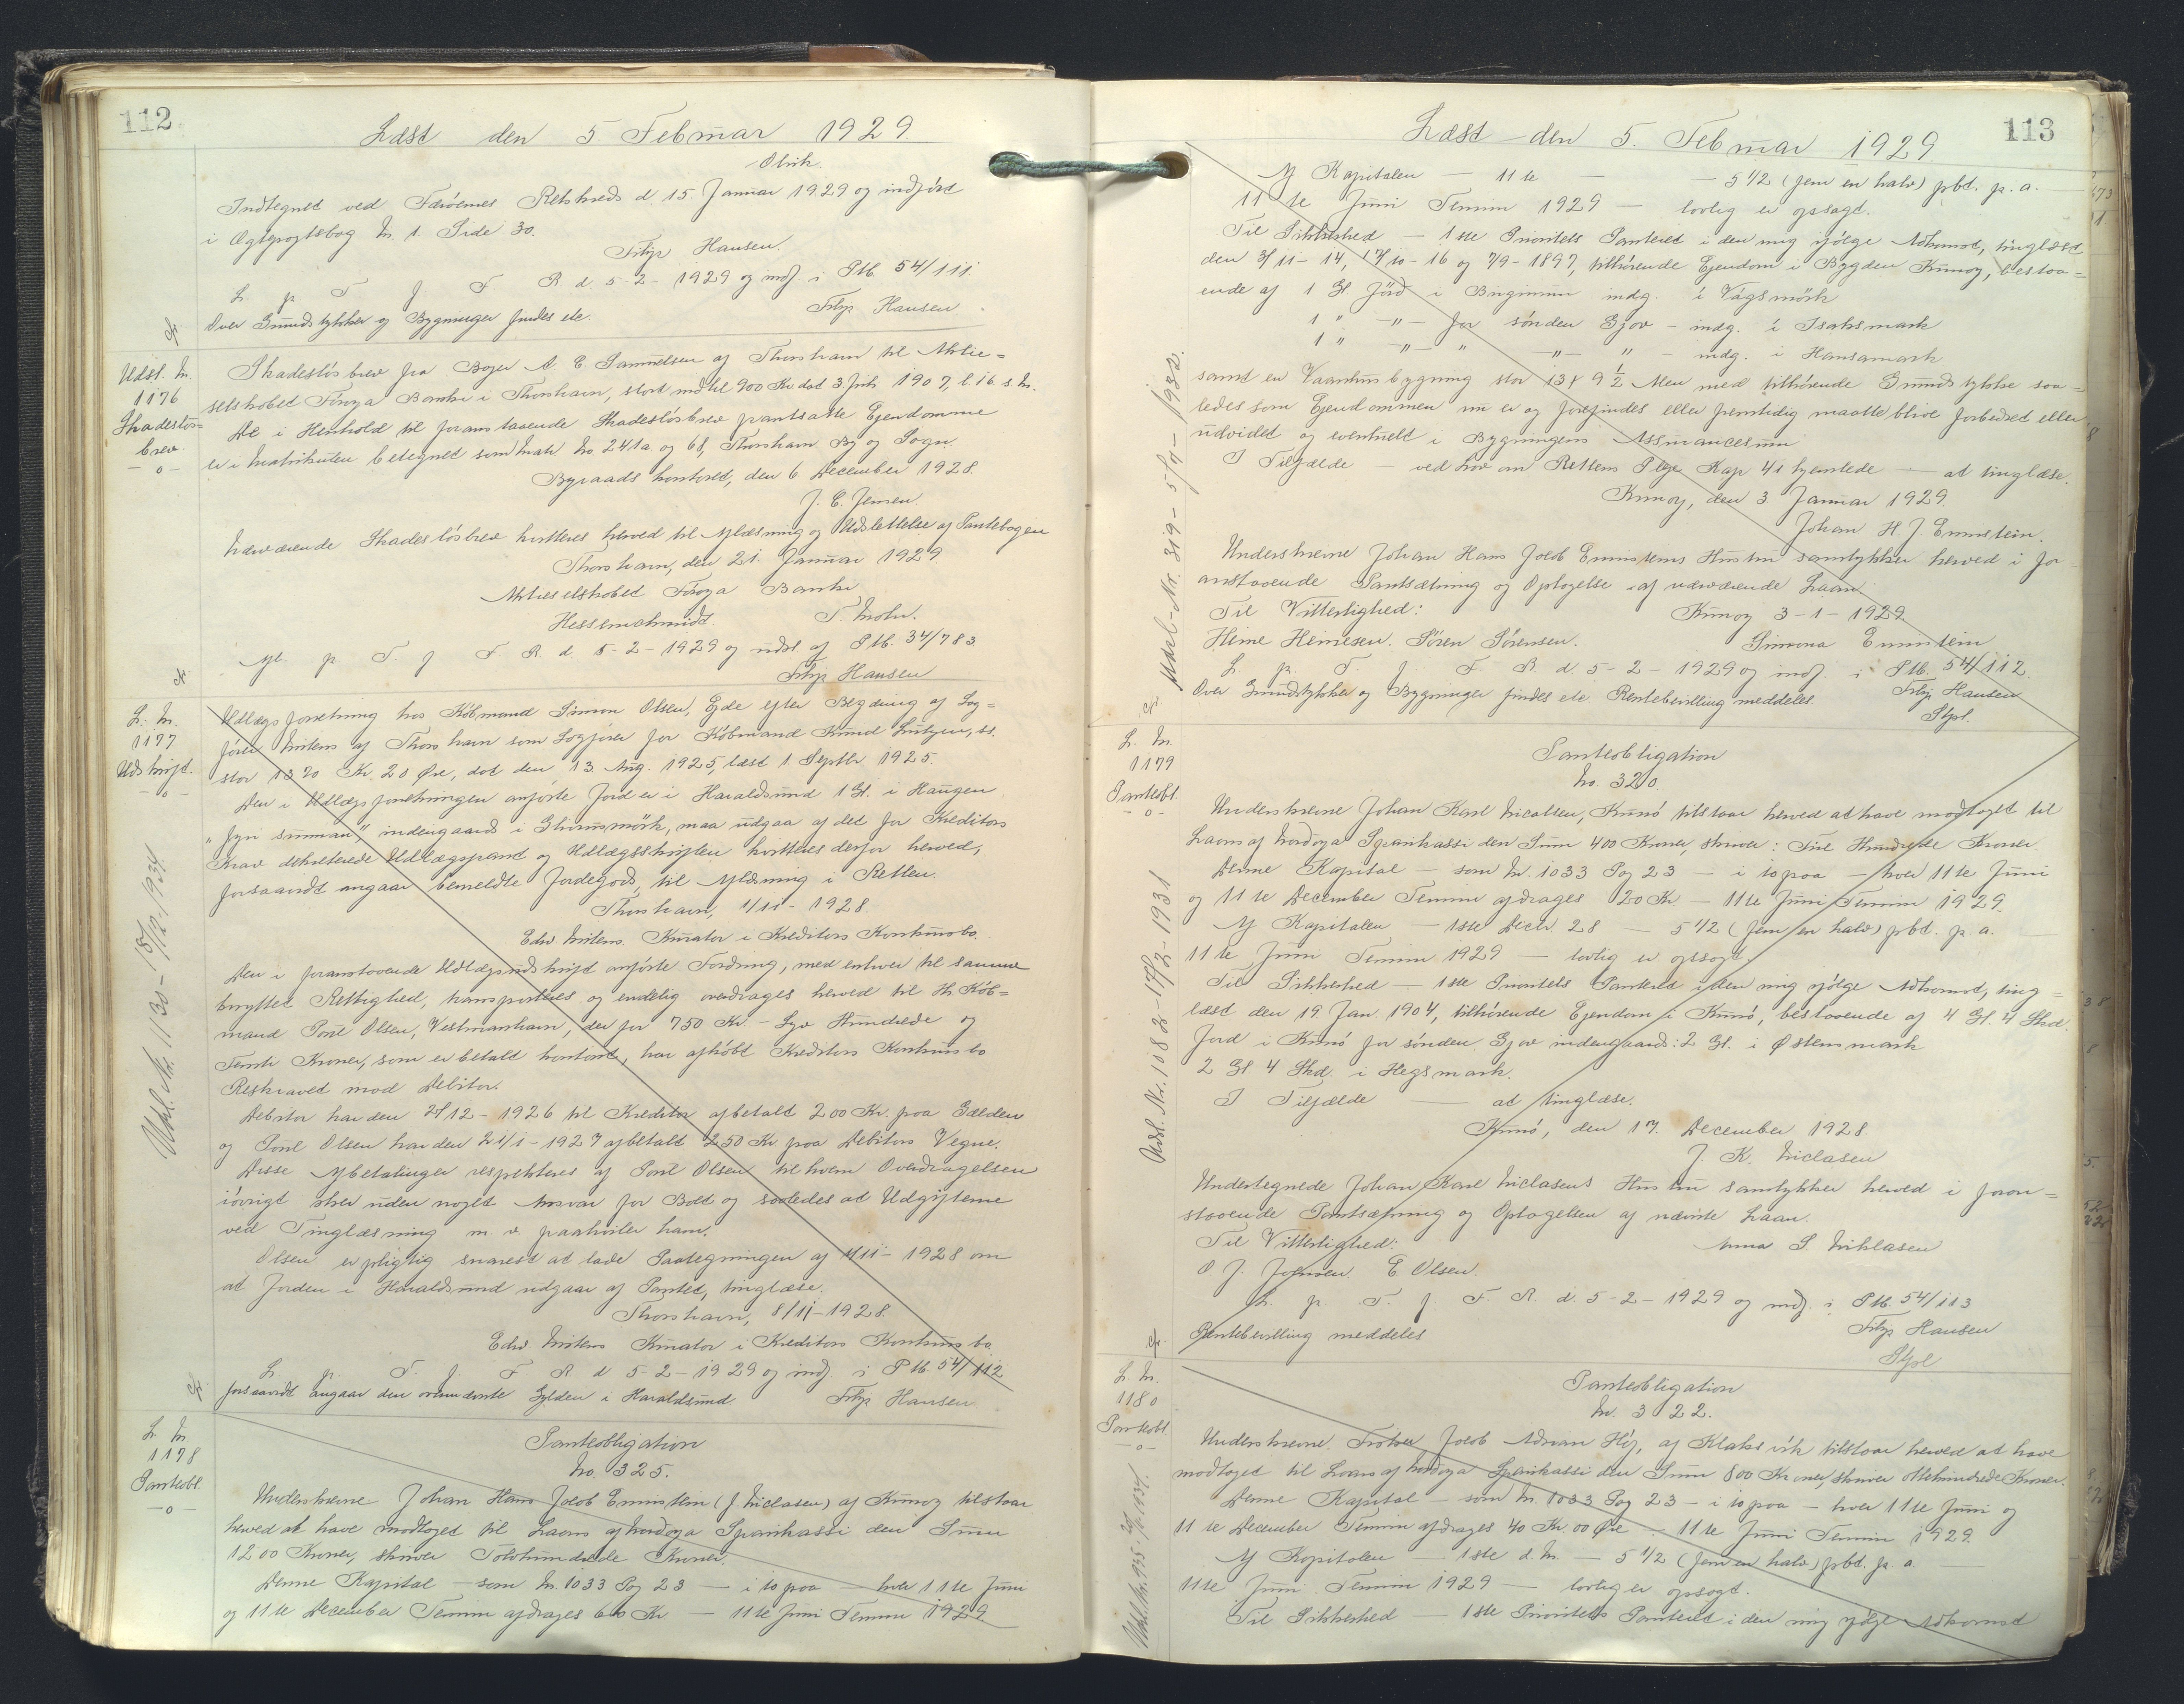 112
Læst den 5 Februar 1929.
Olrik.
Indtegnet ved Færøernes Retskreds d. 15. Januar 1929 og indført
i Ægtepagtebog Nr. 1. Side 30.
Filip Hansen.
L. p. T. f. F. R. d. 5-2-1929 og indf. i Ptb. 54/111.
Over Grundstykker og Bygninger findes etc.
Filip Hansen
Udsl. Nr.
1176
Skadesløs=
brev.
-o-
Skadesløsbrev fra Boger A. E. Samuelsen af Thorshavn til Aktie=
selskabet Føroya Banki i Thorshavn, stort indtil 900 Kr. dat 3. Juli 1907, l. 16. s. M.
De i Henhold til foranstaaende Skadesløsbrev pantsatte Ejendomme
er i Matrikulen betegnet som Matr. No. 241a og 68, Thorshavn By og Sogn.
Byraads kontoret, den 6 December 1928.
J. C. Jensen.
Nærværende Skadesløsbrev kvitteres herved til Aflæsning og Udslettelse af Pantebogen
Thorshavn, den 21. Januar 1929.
Aktieselskabet Føroya Banki
Hessenschmidt. T. Mohr.
Afl. p. T. f. F. R. d. 5-2-1929 og udsl. af Ptb. 34/783
Filip Hansen
L. Nr.
1177
Udskrift.
-o-
Udlægsforretning hos Købmand Simon Olsen, Ejde efter Begæring af Sag=
fører Mitens af Thorshavn som Sagfører for Købmand Knud Lützen, ss.
stor 1370 Kr. 20 Øre, dat den 13. Aug. 1925, læst 1. Septbr. 1925.
Den i Udlægsforretningen anførte Jord er i Haraldsund 1 Gl. i Haugen
"fyri sunnan", indengaards i Skorusmørk, maa udgaa af det for Kreditors
Krav dekreterede Udlægspant og Udlægsskriften kvitteres derfor herved,
forsaavidt angaar bemeldte Jordegods, til Aflæsning i Retten.
Thorshavn, 1/11-1928.
Edw Mitens. Kurator i Kreditors Konkursbo.
Den i foranstaaende Udlægsudskrift anførte Fordring, med enhver til samme
knyttet Rettighed, transporteres og endelig overdrages herved til Hr. Køb=
mand Poul Olsen, Vestmanhavn, der for 750 Kr. - Syv Hundrede og
Femti Kroner, som er betalt kontant, har afkøbt Kreditors Konkursbo
Restkravet mod Debitor.
Debitor har den 21/12-1926 til Kreditor afbetalt 200 Kr. paa Gælden
og Poul Olsen har den 21/1-1927 afbetalt 250 Kr paa Debitors Vegne.
Disse Afbetalinger respekteres af Poul Olsen til hvem Overdragelsen
iøvrigt sker uden noget Ansvar for Boet og saaledes at Udgifterne
ved Tinglæsning m. v. paahviler ham.
Olsen er pligtig snarest at lade Paategningen af 1/11-1928 om
at Jorden i Haraldsund udgaar af Pantet, tinglæse.
Thorshavn, 8/11-1928.
Edw Mitens Kurator i Kreditors Konkursbo
L. p. T. f. F. R. d 5-2-1929 og indf. i Ptb. 54/112
forsaavidt angaar den ommeldte Gylden i Haraldsund. Filip Hansen
Udsl. Nr. 1130 - 15/12-1934
L. Nr.
1178
Panteobl.
-o-
Panteobligation
No. 325.
Underskrevne Johan Hans Jacob Ennistein (J. Niclasen) af Kunoy tilstaar
herved at have modtaget til Laans af Nordoya Sparikassi den Sum
1200 Kroner, skriver Tolvhundrede Kroner.
Denne Kapital - som Nr. 1033 Pag 23 - i to paa - hver 11te Juni
og 11te December Termin afdrages 60 Kr - 11te Juni Termin 1929.
113
Læst den 5. Februar 1929.
Af Kapitalen - 11te - - 5 1/2 (fem en halv) pCt. p. a.
11te Juni Termin 1929 - lovlig er opsagt.
Til Sikkerhed - 1ste Prioritets Panteret i den mig ifølge Adkomst, tinglæst
den 3/11-14, 17/10-16 og 7/9-1897, tilhørende Ejendom i Bygden Kunoy, bestaa=
ende af 1 Gl Jord i Buginum indg. i Vágsmørk
1 " -"- for sønden Gjov - indg. i Isaksmark
1 " -"- " -"- " - indg. i Hansamark
samt en Vaaningsbygning stor 13 x 9 1/2 Alen med tilhørende Grundstykke saa=
ledes som Ejendommen nu er og forefindes eller fremtidig maatte blive forbedret eller
udvidet og eventuelt i Bygningens Assurancesum
I Tilfælde - ved Lov om Rettens Pleje Kap 41 hjemlede - at tinglæse.
Kunoy, den 3 Januar 1929.
Johan H. J. Ennistein.
Underskrevne Johan Hans Jacob Ennisteins Hustru samtykker herved i for=
anstaaende Pantsætning og Optagelse af nærværende Laan.
Til Vitterlighed: Kunoy 3-1-1929
Heine Heinesen. Søren Sørensen. Simona Ennistein
L. p. T. f. F. R. d. 5-2-1929 og indf. i Ptb. 54/112.
Over Grundstykker og Bygninger findes etc. Rentebevilling meddeles. Filip Hansen
Stpl.
Udsl-Nr. 319 - 5/9-1932.
L. Nr.
1179
Panteobl.
-o-
Panteobligation
No. 320.
Underskrevne Johan Karl Nicalsen, Kunø tilstaar herved at have modtaget til
Laans af Nordoya Sparikassi den Sum 400 Kroner, skriver: Fire Hundrede Kroner.
Denne Kapital - som Nr. 1033 Pag 23 - i to paa - hver 11te Juni
og 11te December Termin afdrages 20 Kr - 11te Juni Termin 1929.
Af Kapitalen - 1ste Decbr. 28 - 5 1/2 (fem en halv) pCt. p. a.
11te Juni Termin 1929 - lovlig er opsagt.
Til Sikkerhed - 1ste Prioritets Panteret i den mig ifølge Adkomst, ting=
læst den 19 Jan. 1904, tilhørende Ejendom i Kunø, bestaaende af 4 Gl. 4 Skd.
Jord i Kunø for sønden Gjov indengaards: 2 Gl. i Østensmark
2 Gl 4 Skd. i Hegsmark.
I Tilfælde - at tinglæse.
Kunø, den 17. December 1928.
J. K. Niclasen
Undertegnede Johan Karl Niclasens Hustru samtykker herved i foran=
staaende Pantsætning og Optagelsen af nævnte Laan.
Til Vitterlighed: Anna S. Niklasen
O. J. Joensen. E. Olsen.
L. p. T. f. F. R. d. 5-2-1929 og indf. i Ptb. 54/113
Rentebevilling meddeles Filip Hansen
Stpl
Udsl. Nr. 1082 - 17/2-1931
L. Nr.
1180
Panteobl
-o-
Panteobligation
Nr. 322.
Underskrevne. Jacob Adrian Høj, af Klaksvik tilstaar herved at have
modtaget til Laans af Nordoya Sparikassi den Sum 800 Kroner, skriver Ottehundrede Kroner.
Denne Kapital - som Nr. 1033 Pag 23 - i to paa - hver 11te Juni og
11te December Termin afdrages 40 Kr. 00 Øre - 11te Juni Termin 1929.
Af Kapitalen - 1ste d. M. - 5 1/2 (fem en halv) pCt. p. a.
11te Juni Termin 1929 - lovlig er opsagt.
Til Sikkerhed - 1ste Prioritets Panteret i den mig ifølge Adkomst